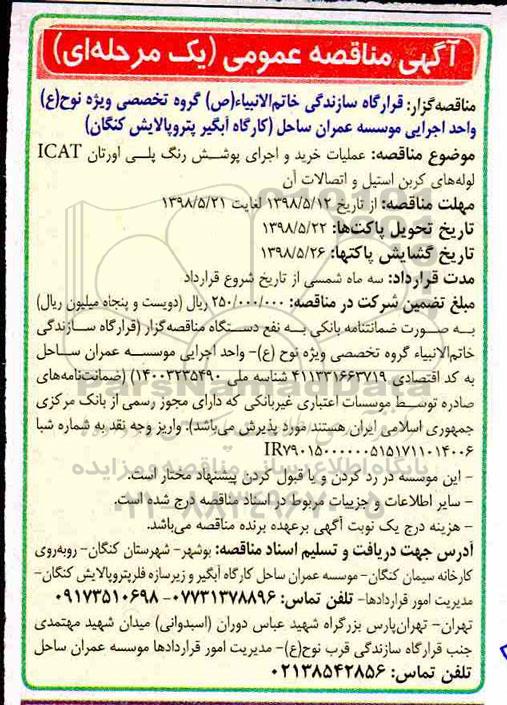 آگهی مناقصه عمومی (یک مرحله‌ای)
مناقصه‌گزار: قرارگاه سازندگی خاتم‌الانبیاء(ص) گروه تخصصی ویژه نوح(ع)
واحد اجرایی موسسه عمران ساحل (کارگاه آبگیر پتروپالایش کنگان)
موضوع مناقصه: عملیات خرید و اجرای پوشش رنگ پلی اورتان ICAT
لوله‌های کربن استیل و اتصالات آن
مهلت مناقصه: از تاریخ ۱۳۹۸/۵/۱۲ لغایت ۱۳۹۸/۵/۲۱
تاریخ تحویل پاکت‌ها: ۱۳۹۸/۵/۲۲
تاریخ گشایش پاکتها: ۱۳۹۸/۵/۲۶
مدت قرارداد: سه ماه شمسی از تاریخ شروع قرارداد
مبلغ تضمین شرکت در مناقصه: ۲۵۰/۰۰۰/۰۰۰ ریال (دویست و پنجاه میلیون ریال)
به صورت ضمانتنامه بانکی به نفع دستگاه مناقصه‌گزار (قرارگاه سازندگی
خاتم‌الانبیاء گروه تخصصی ویژه نوح (ع)- واحد اجرایی موسسه عمران ساحل
به کد اقتصادی ۴۱۱۳۳۱۶۶۳۷۱۹ شناسه ملی ۱۴۰۰۳۲۳۵۴۹۰) (ضمانت‌نامه‌های
صادره توسط موسسات اعتباری غیربانکی که دارای مجوز رسمی از بانک مرکزی
جمهوری اسلامی ایران هستند مورد پذیرش می‌باشد). واریز وجه نقد به شماره شبا
IR۷۹۰۱۵۰۰۰۰۰۰۵۱۵۱۷۱۱۰۱۴۰۰۶
- این موسسه در رد کردن و یا قبول کردن پیشنهاد مختار است.
- سایر اطلاعات و جزییات مربوط در اسناد مناقصه درج شده است.
- هزینه درج یک نوبت آگهی برعهده برنده مناقصه می‌باشد.
آدرس جهت دریافت و تسلیم اسناد مناقصه: بوشهر- شهرستان کنگان- روبه‌روی
کارخانه سیمان کنگان- موسسه عمران ساحل کارگاه آبگیر و زیرسازه فلرپتروپالایش کنگان-
مدیریت امور قراردادها- تلفن تماس: ۰۷۷۳۱۳۷۸۸۹۶- ۰۹۱۷۳۵۱۰۶۹۸
تهران- تهران‌پارس بزرگراه شهید عباس دوران (اسبدوانی) میدان شهید مهتمدی
جنب قرارگاه سازندگی قرب نوح(ع)- مدیریت امور قراردادها موسسه عمران ساحل
تلفن تماس: ۰۲۱۳۸۵۴۲۸۵۶